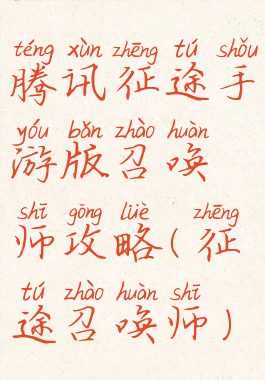 téng xùn zhēng tú shǒu
腾讯征途手
yóu bǎn zhào huàn
游版召唤
shī gōng lüè zhēng
师攻略(征
tú zhào huàn shī
途召唤师)